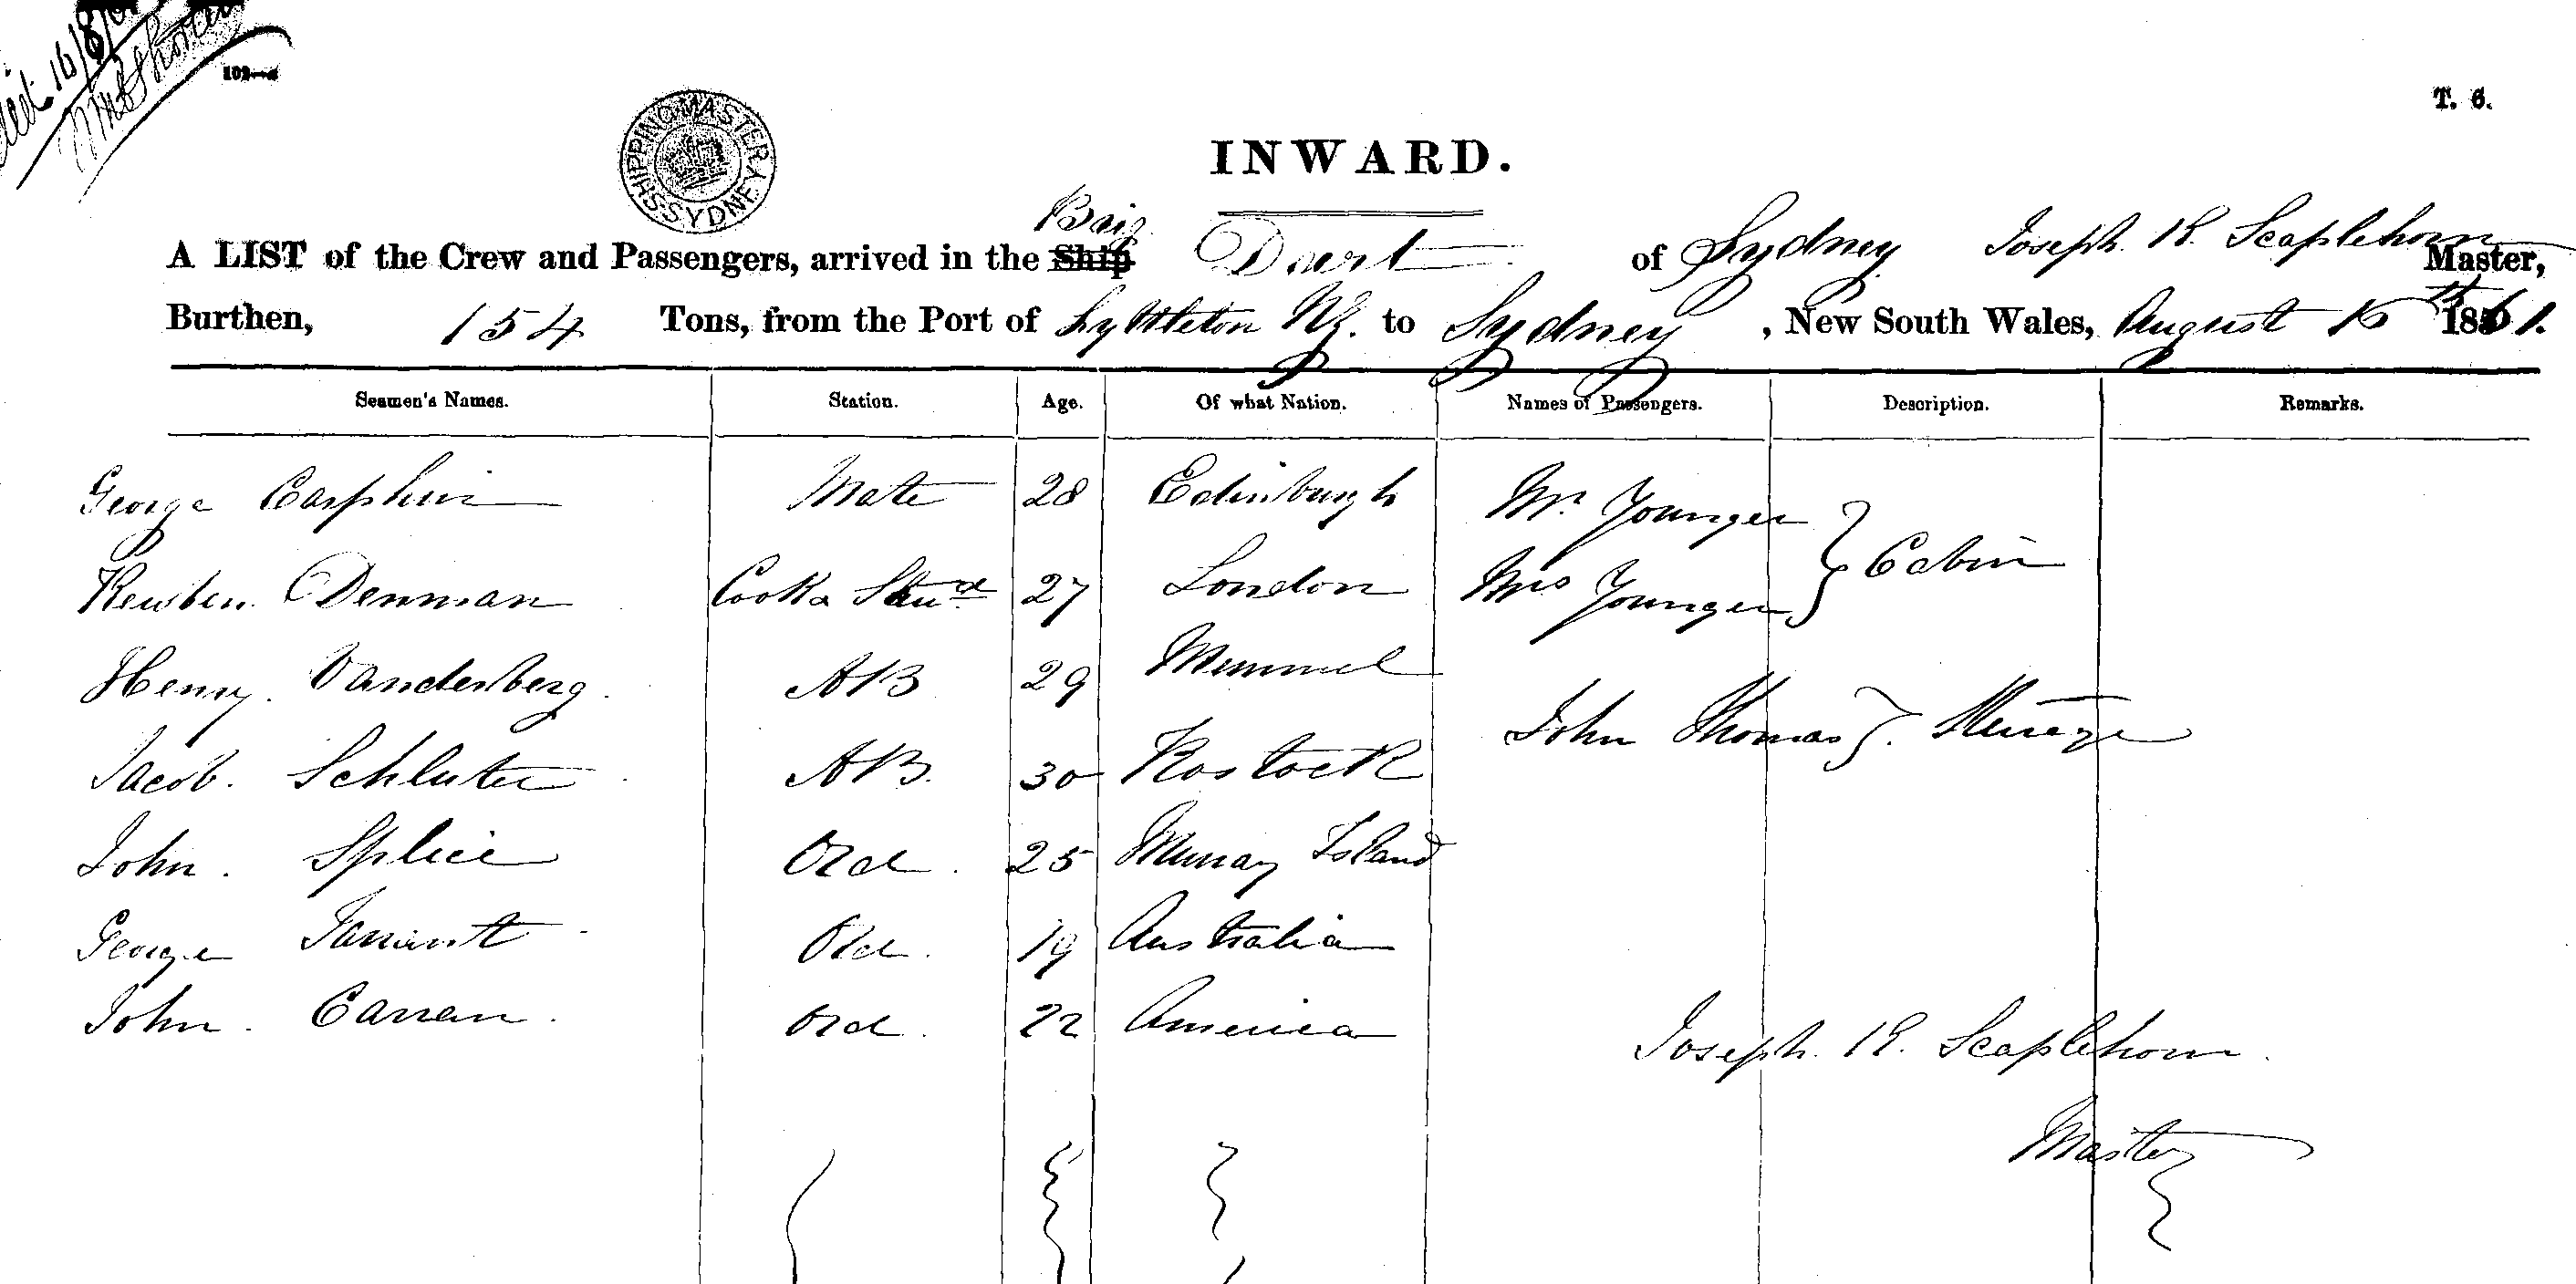 102—a
T. 6.
SHIPPING MASTER SYDNEY
INWARD.
A LIST of the Crew and Passengers, arrived in the Ship Brig Dart of Sydney Joseph R. Scaplehorn Master,
Burthen, 154 Tons, from the Port of Lyttleton NZ. to Sydney, New South Wales, August 16th 1861.
Seamen's Names. Station. Age. Of what Nation. Names of Passengers. Description. Remarks.
George Carphin Mate 28 Edinburgh Mr. Younger
Reuben Denman Cook & Stewd 27 London Mrs Younger } Cabin
Henry Vanderberg AB 29 Memmel
Jacob Schluter AB 30 Rostock John Thomas }. Steerage
John Splice Ord 25 Murray Island
George Tarrant Ord 19 Australia
John Carran Ord 22 America
Joseph R. Scaplehorn
Master